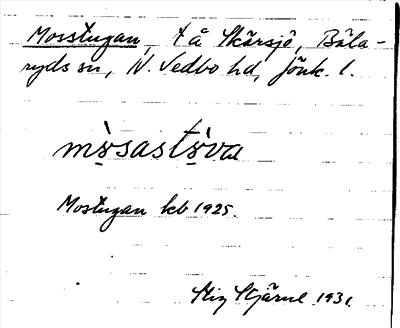 Mosstugan, t å Skärsjö, Bäla-
ryds sn, N. Vedbo hd, Jönk. l.
mò̤sastò̤va
Mostugan kb 1925.
Stig Stjärne 1931.